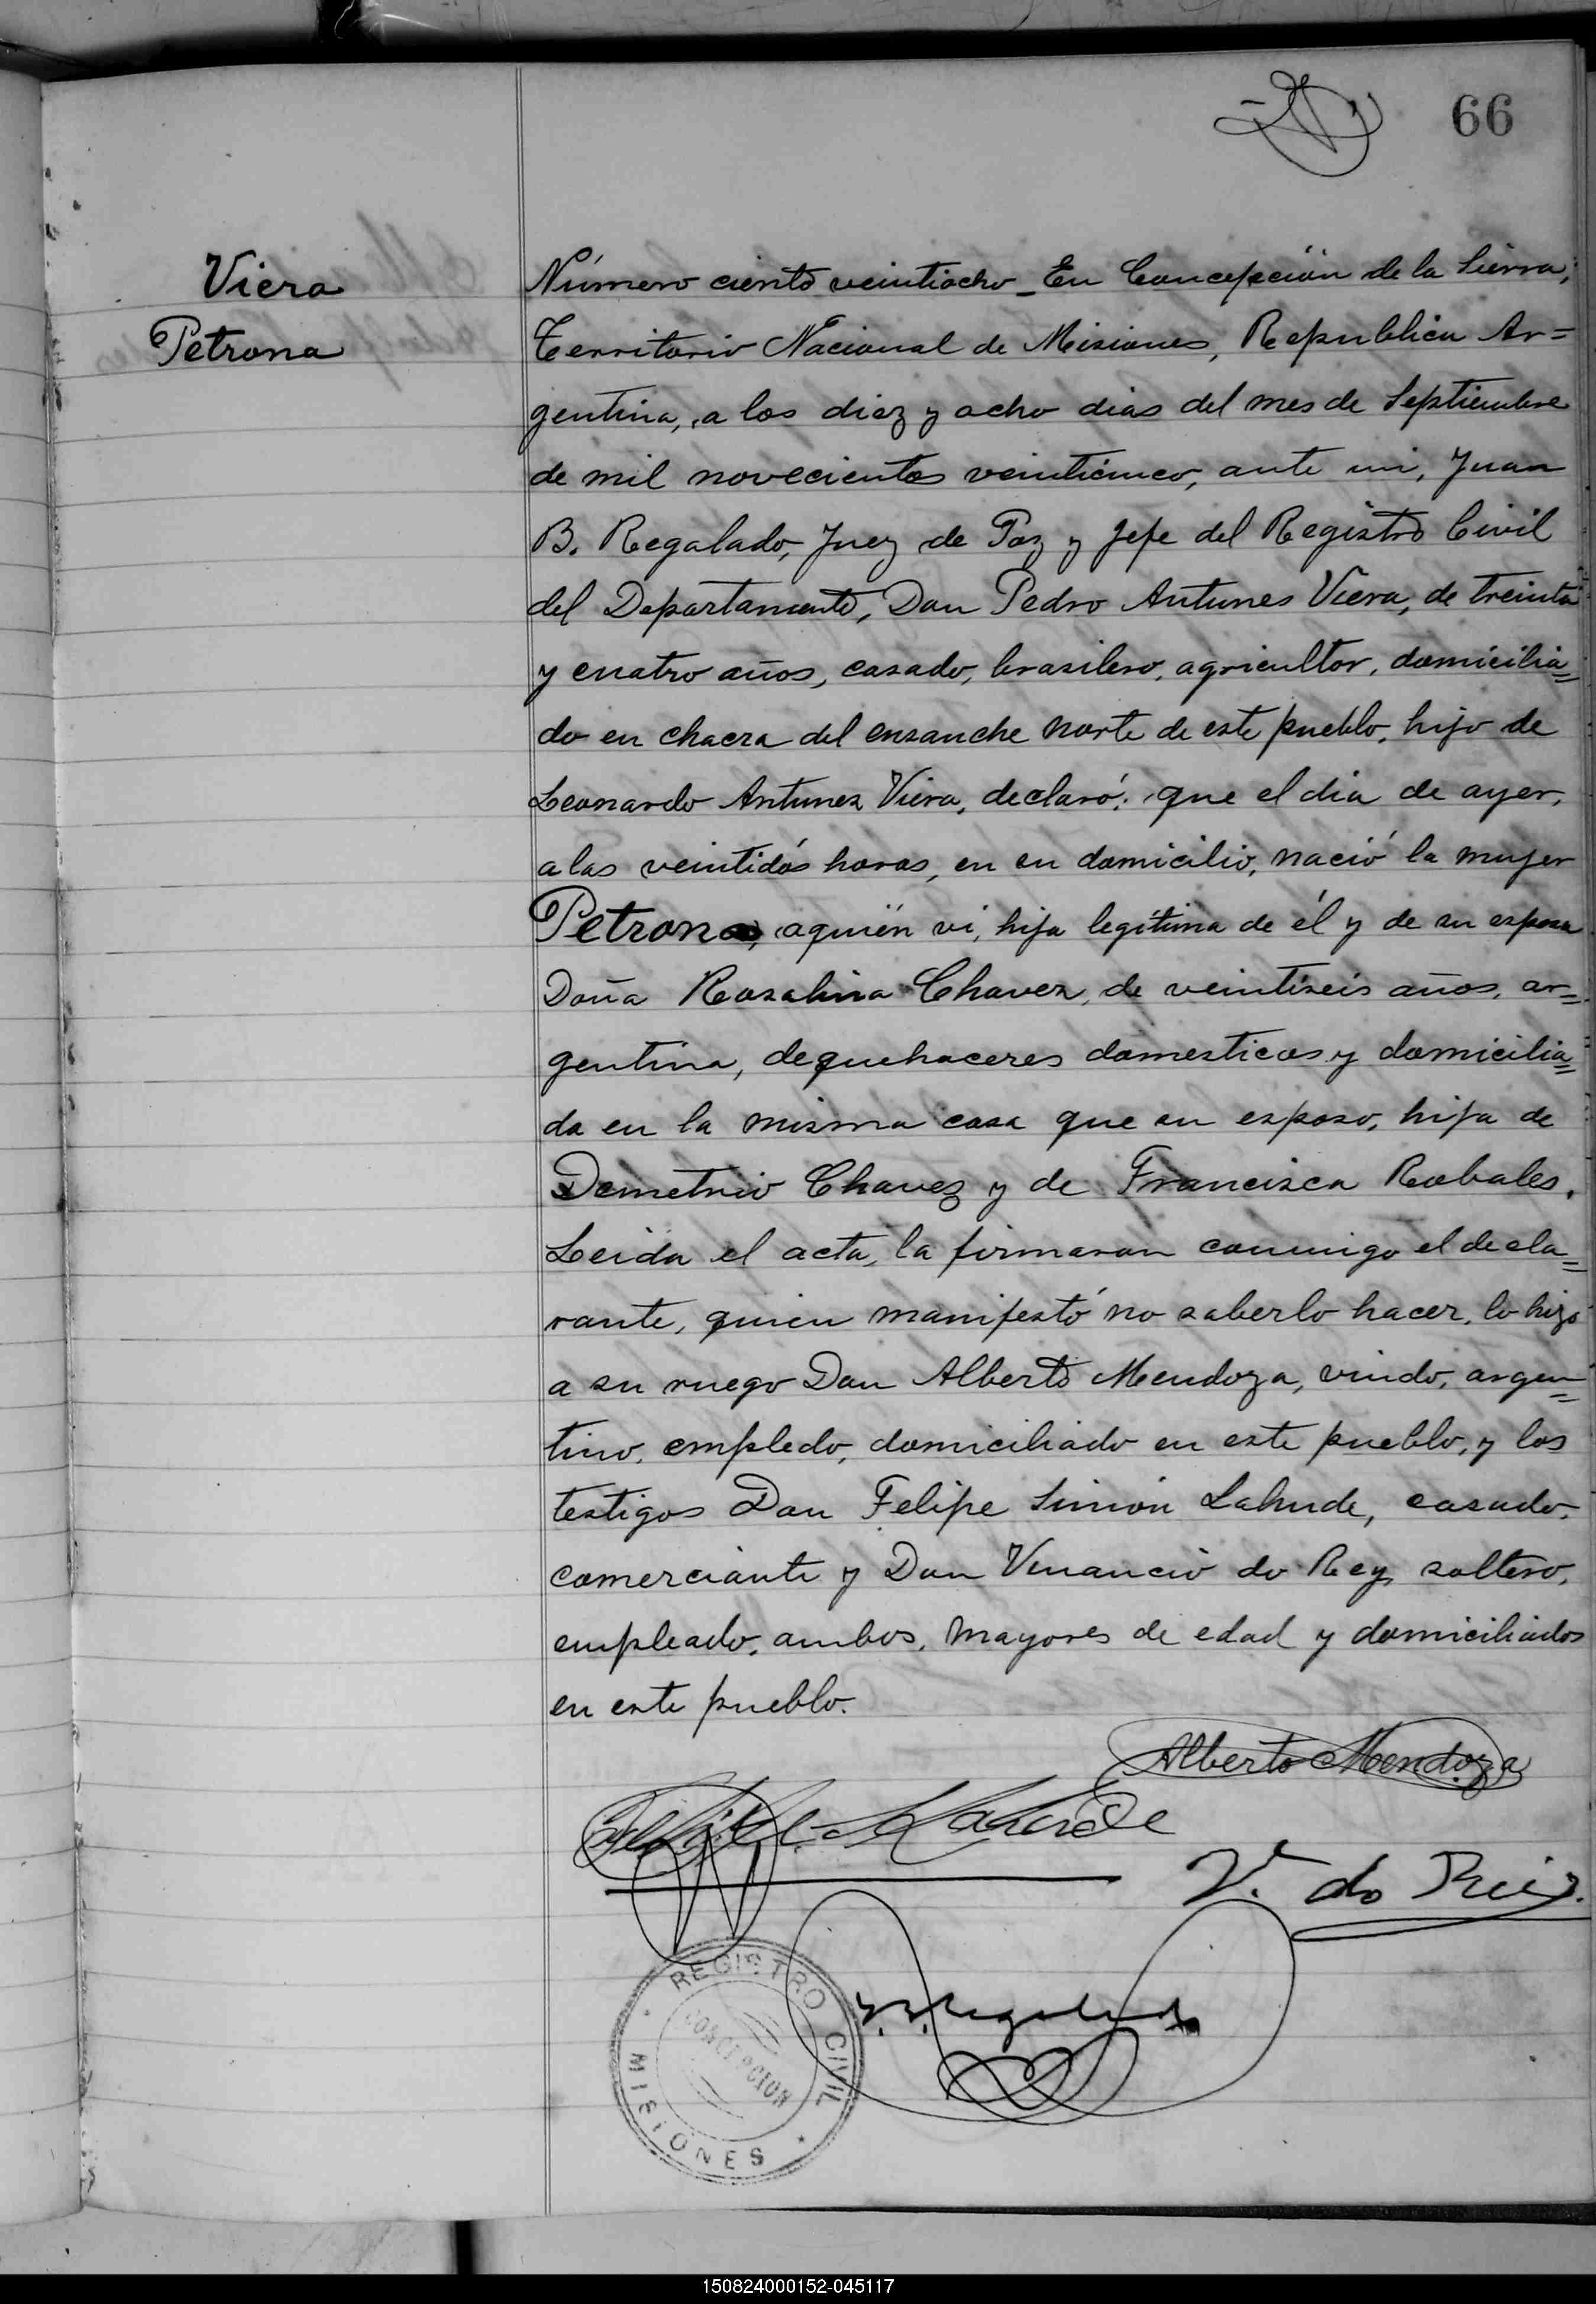 66
Viera
Petrona
Número ciento veintiocho_ En Concepción de la Sierra,
Territorio Nacional de Misiones, Republica Ar=
gentina, a los diez y ocho dias del mes de Septiembre
de mil novecientos veinticinco, ante mi, Juan
B. Regalado, Juez de Paz y Jefe del Registro Civil
del Departamento, Don Pedro Antunes Viera, de treinta
y cuatro años, casado, brasilero, agricultor, domicilia=
do en chacra del ensanche norte de este pueblo, hijo de
Leonardo Antunez Viera, declaró: que el dia de ayer,
a las veintidós horas, en su domicilio, nació la mujer
Petrona, aquién vi, hija legítima de él y de su esposa
Doña Rosalina Chavez, de veintiseis años, ar=
gentina, de quehaceres domesticos y domicilia=
da en la misma casa que su esposo, hija de
Demetrio Chavez y de Francisca Robales.
Leida el acta, la firmaron conmigo el decla=
rante, quien manifestó no saberlo hacer, lo hizo
a su ruego Don Alberto Mendoza, viudo, argen=
tino, empledo, domiciliado en este pueblo, y los
testigos Don Felipe Simón Lahude, casado,
comerciante y Don Venancio do Rey, soltero,
empleado, ambos, mayores de edad y domiciliados
en este pueblo.
Alberto Mendoza
Felipe S Lahude
V. do Rey.
J. B. Regalado
REGISTRO CIVIL
CONCEPCION
MISIONES
150824000152-045117